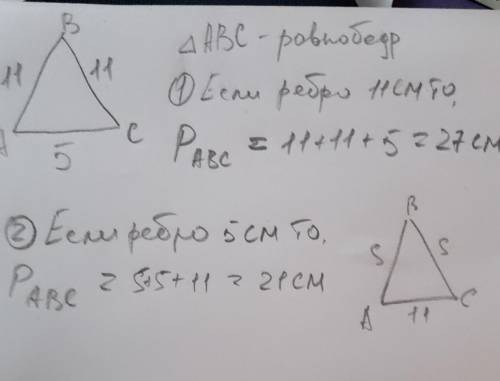 B
△ABC - равнобедр
11 11
① Если ребро 11см то,
A C
5
P ABC = 11+11+5 = 27 см
② Если ребро 5 см то,
P ABC = 5+5+11 = 21 см
B
5 5
A C
11